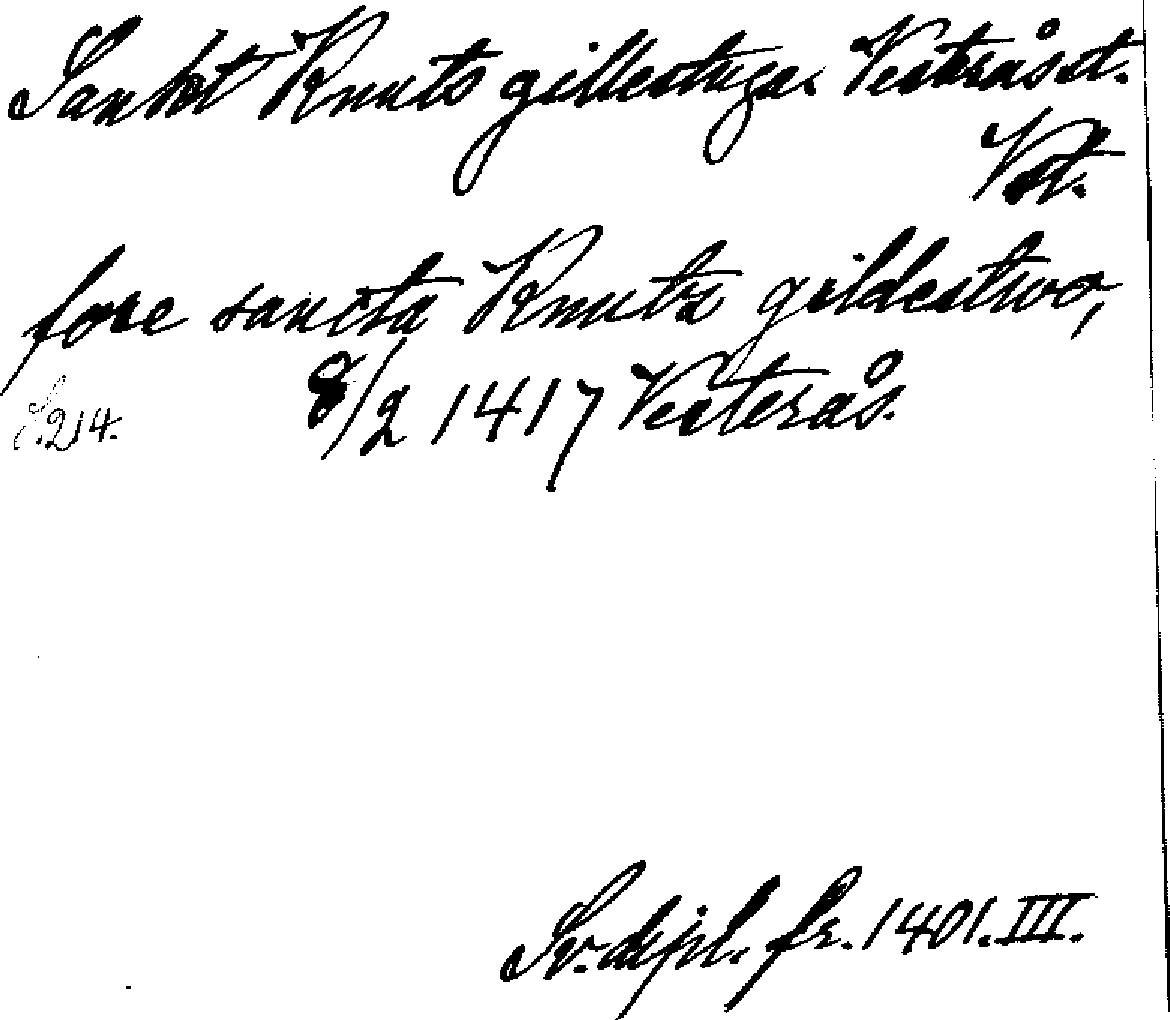 Sankt Knuts gillestuga. Vesterås st.
Vst.
fore sancta Knutz gildestwo,
S. 214. 8/2 1417 Vesterås.
Sv. dipl. fr. 1401. III.